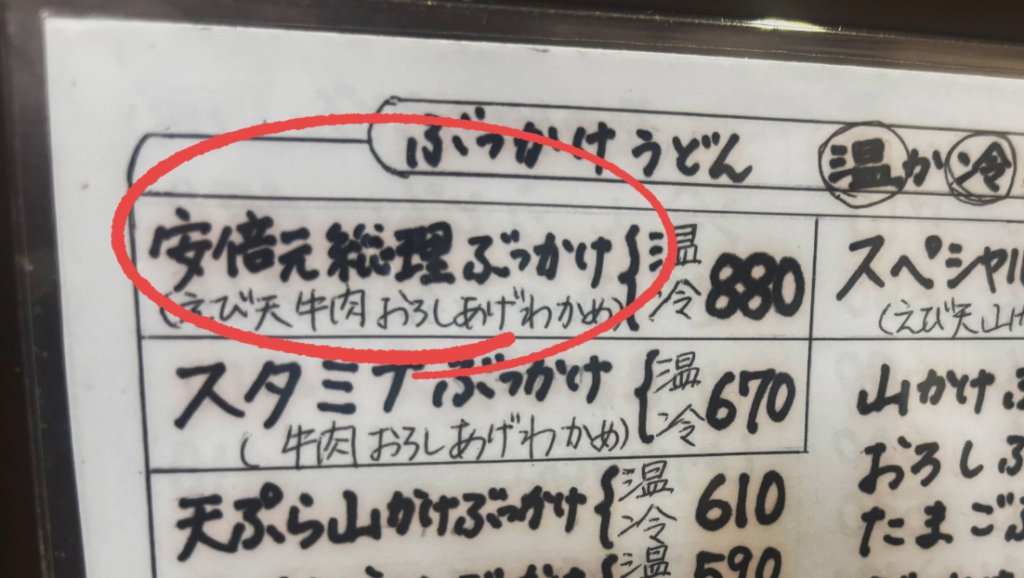 ぶっかけうどん 温か冷
安倍元総理ぶっかけ 温 冷 880
(えび天 牛肉 おろしあげわかめ)
スタミナぶっかけ 温 冷 670
( 牛肉 おろしあげわかめ)
天ぷら山かけぶっかけ 温 冷 610
温 590
スペシャル
(えび天山か
山かけぶ
おろしぶ
たまごぶ